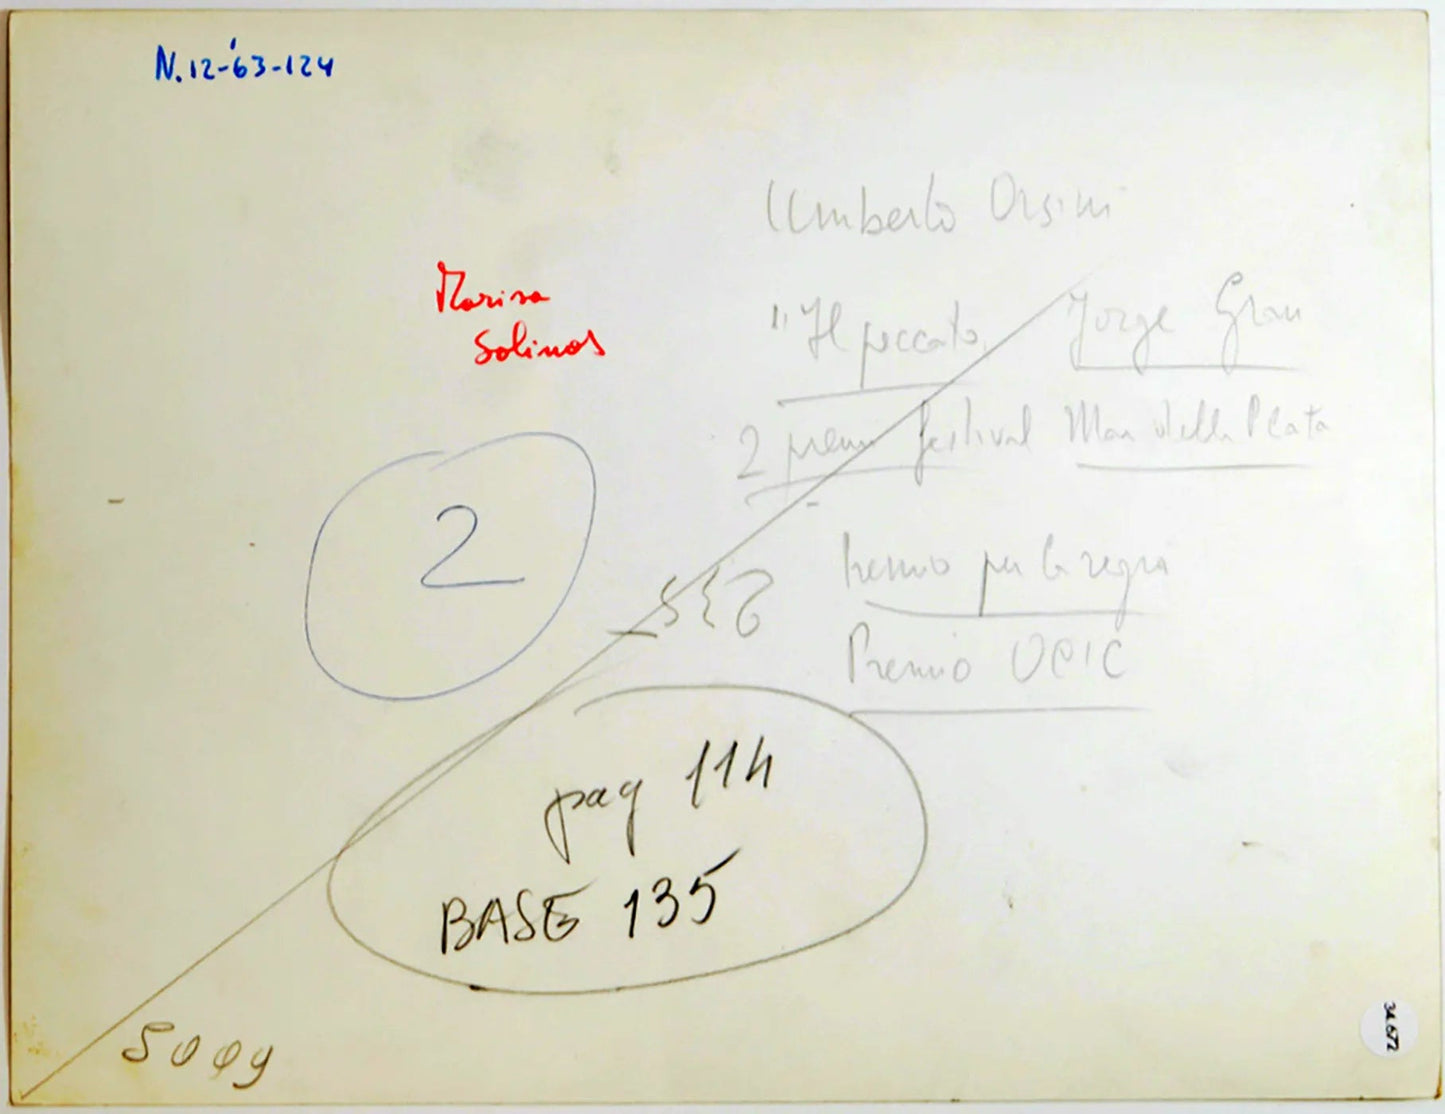 N. 12-63-124
Umberto Orsini
Marisa
Solinas
"Il peccato Jorge Grau
2 premi festival Mar della Plata
2
Premio per la regia
Premio OCIC
pag 114
BASE 135
5009
34.672